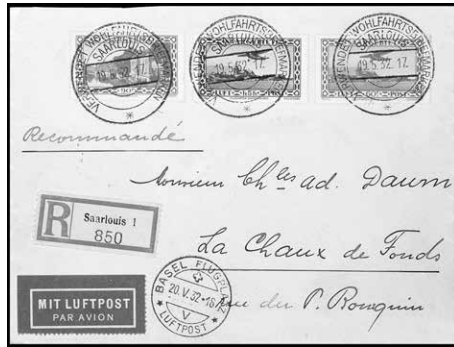 VERWENDET WOHLFAHRTSBRIEFMARKEN
SAARLOUIS
19.5.32.17
VERWENDET WOHLFAHRTSBRIEFMARKEN
SAARLOUIS
19.5.32.17
VERWENDET WOHLFAHRTSBRIEFMARKEN
SAARLOUIS
19.5.32.17
Recommandé
Monsieur Chles ad. Daum
R
Saarlouis 1
850
La Chaux de Fonds
BASEL FLUGPLATZ
20.V.32-18
V
LUFTPOST
rue du P.
MIT LUFTPOST
PAR AVION